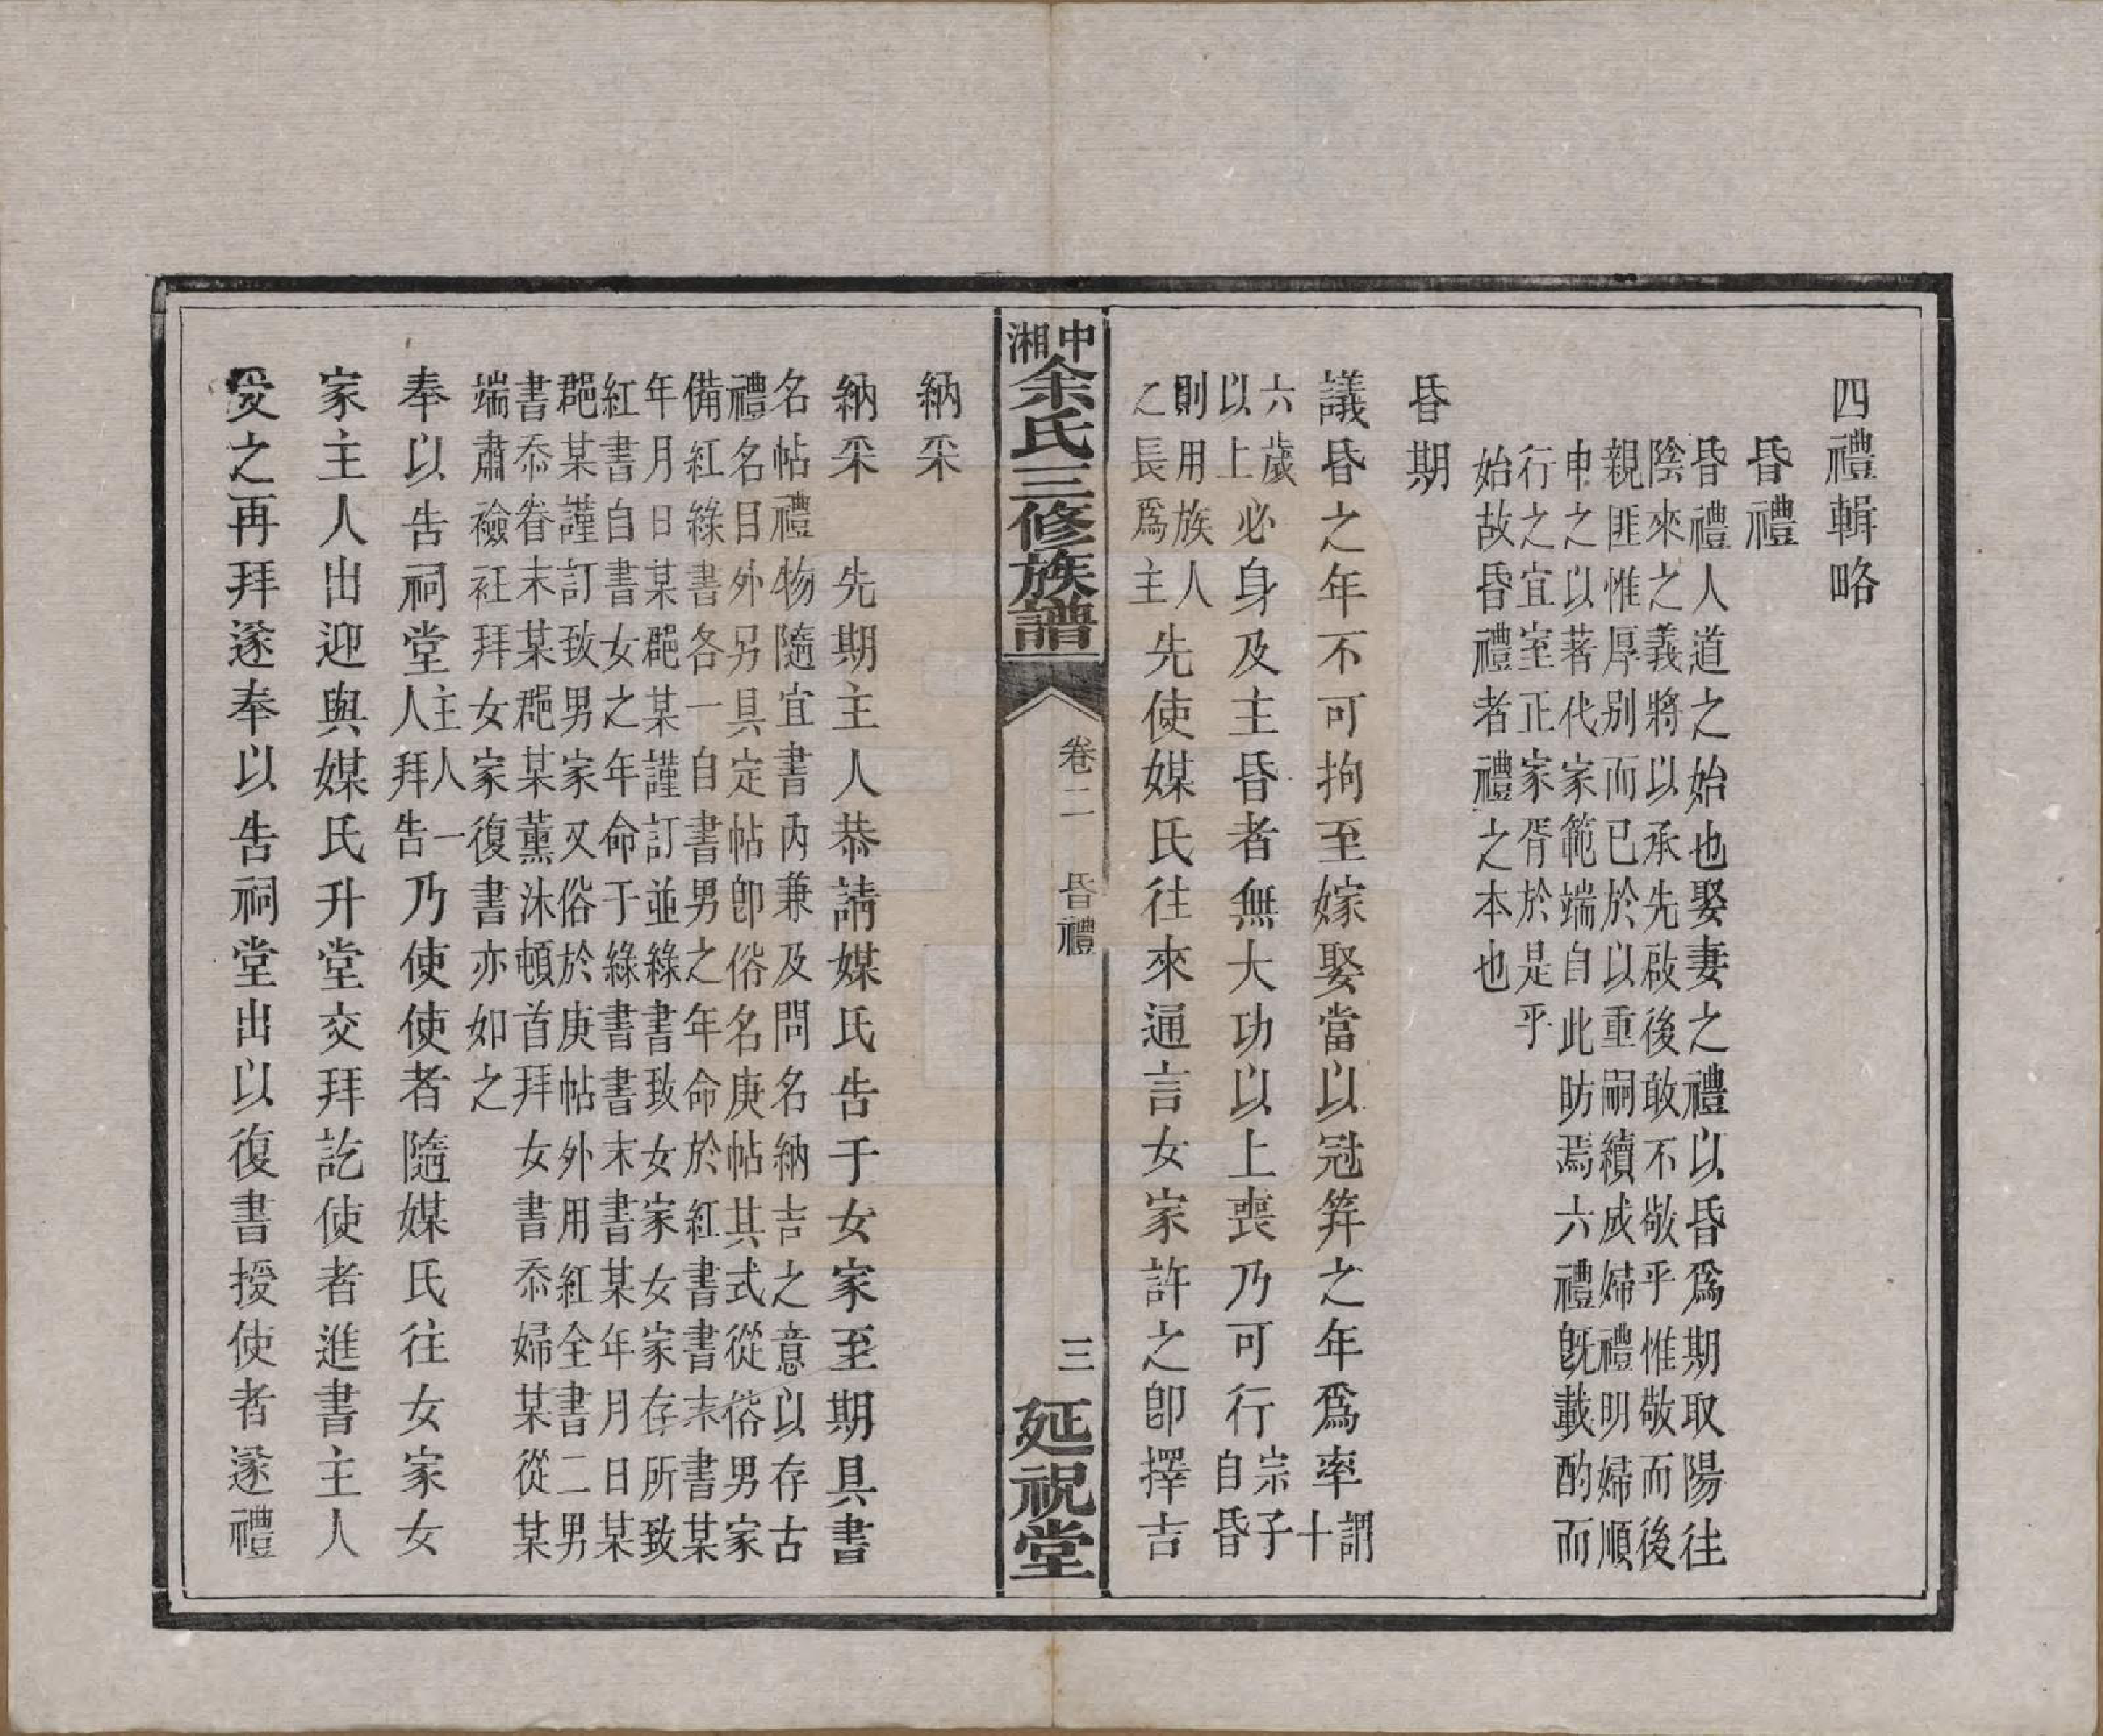 四禮輯略
昏禮
昏禮人道之始也娶妻之禮以昏爲期取陽往
陰來之義將以承先啟後敢不敬乎惟敬而後
親匪惟厚别而已於以重嗣續成婦禮明婦順
申之以著代家範端自此昉焉六禮旣載酌而
行之宜室正家胥於是乎
始故昏禮者禮之本也
昏期
議昏之年不可拘至嫁娶當以冠筓之年爲率謂十
六歲以上必身及主昏者無大功以上喪乃可行宗子自昏
則用族人之長爲主先使媒氏往來通言女家許之卽擇吉
中湘余氏三修族譜
卷二 昏禮
三
延祝堂
納采
納采 先期主人恭請媒氏告于女家至期具書
名帖禮物隨宜書內兼及問名納吉之意以存古
禮名目外另具定帖卽俗名庚帖其式從俗男家
備紅綠書各一自書男之年命於紅書書末書某
年月日某郡某謹訂並綠書致女家女家存所致
紅書自書女之年命于綠書書末書某年月日某
郡某謹訂致男家又俗於庚帖外用紅全書二男
書忝眷末某郡某薰沐頓首拜女書忝婦某從某
端肅襝衽拜女家復書亦如之
奉以告祠堂主人一人拜告乃使使者隨媒氏往女家女
家主人出迎與媒氏升堂交拜訖使者進書主人
受之再拜遂奉以告祠堂出以復書授使者遂禮